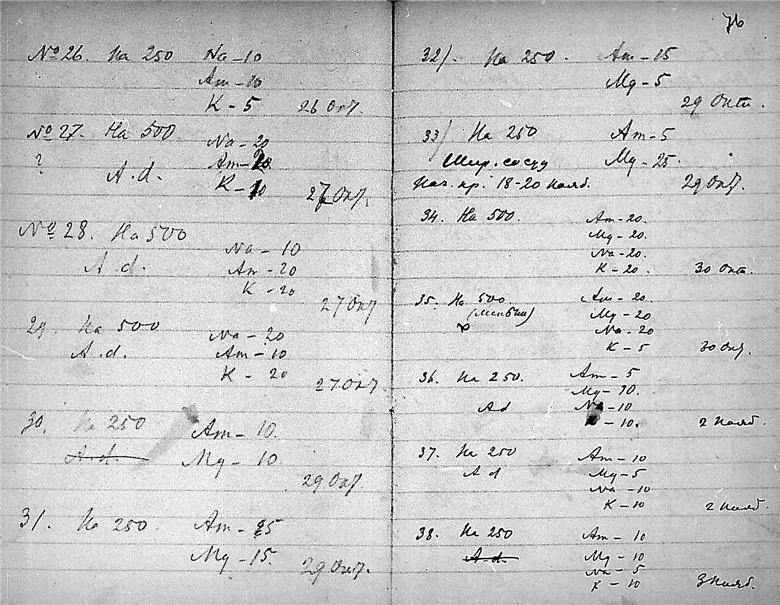 № 26. На 250 Na - 10
Am - 10
K - 5 26 Окт.
№ 27. На 500 Na - 20
? Am - 20
A.d.
K - 10 27 Окт.
№ 28. На 500
Na - 10
A d. Am - 20
K - 20
27 Окт
29. На 500 Na - 20
A.d. Am - 10
K - 20
27 Окт
30. На 250 Am - 10.
A.d. Mg - 10
29 Окт
31. На 250. Am -
Mg - 15. 29 Окт.
76
32). На 250. Am - 15
Mg - 5
29 Окт.
33) На 250 Am - 5
Шир. сосуд Mg - 25.
Нач. кр. 18-20 нояб. 29 Окт.
34. На 500. Am - 20.
Mg - 20.
Na - 20.
K - 20. 30 Окт.
35. На 500. Am - 20.
Mg - 20
Na - 20
K - 5 30 Окт.
36. На 250. Am - 5
Mg - 10.
Ad Na - 10
K - 10. 2 нояб.
37. На 250 Am - 10
A d Mg - 5
Na - 10
K - 10 2 нояб.
38. На 250 Am - 10
A.d. Mg - 10
Na - 5
K - 10 3 нояб.